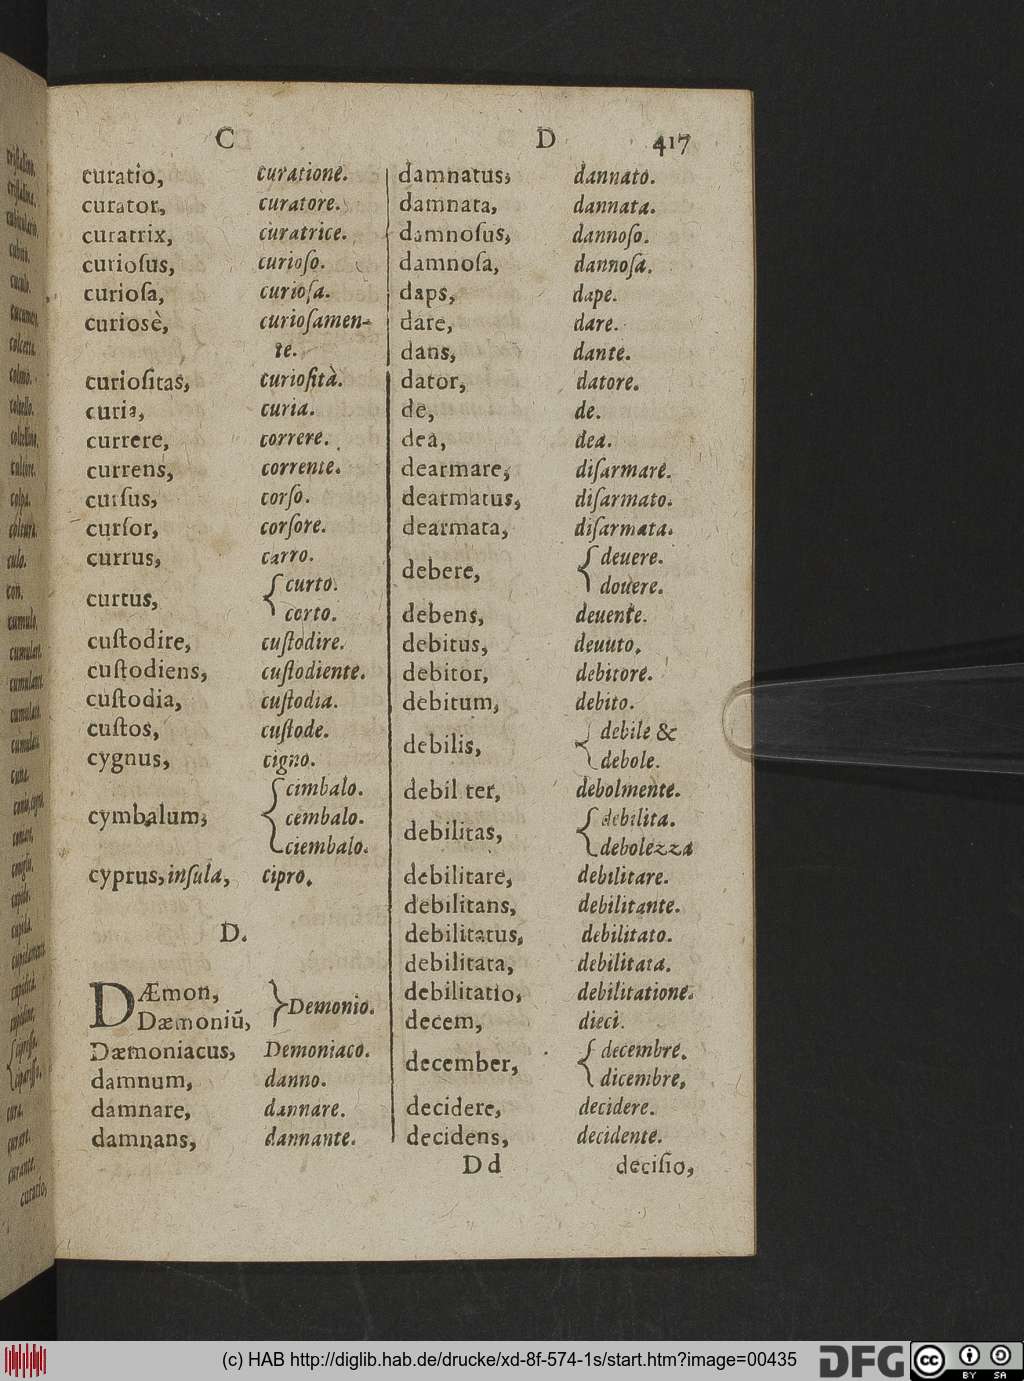 C D 417
curatio, curatione.
curator, curatore.
curatrix, curatrice.
curioſus, curioſo.
curioſa, curioſa.
curiosè, curioſamen-
te.
curioſitas, curioſità.
curia, curia.
currere, correre.
currens, corrente.
curſus, corſo.
curſor, corſore.
currus, carro.
curtus, curto.
corto.
cuſtodire, cuſtodire.
cuſtodiens, cuſtodiente.
cuſtodia, cuſtodia.
cuſtos, cuſtode.
cygnus, cigno.
cymbalum, cimbalo.
cembalo.
ciembalo.
cyprus, inſula, cipro.
D.
DÆmon,
Dæmoniũ, Demonio.
Dæmoniacus, Demoniaco.
damnum, danno.
damnare, dannare.
damnans, dannante.
damnatus, dannato.
damnata, dannata.
damnoſus, dannoſo.
damnoſa, dannoſa.
daps, dape.
dare, dare.
dans, dante.
dator, datore.
de, de.
dea, dea.
dearmare, diſarmare.
dearmatus, diſarmato.
dearmata, diſarmata.
debere, deuere.
douere.
debens, deuente.
debitus, deuuto.
debitor, debitore.
debitum, debito.
debilis, debile &
debole.
debil ter, debolmente.
debilitas, debilita.
debolezza
debilitare, debilitare.
debilitans, debilitante.
debilitatus, debilitato.
debilitata, debilitata.
debilitatio, debilitatione.
decem, dieci.
december, decembre.
dicembre,
decidere, decidere.
decidens, decidente.
D d deciſio,
(c) HAB http://diglib.hab.de/drucke/xd-8f-574-1s/start.htm?image=00435
HAB
DFG
cc BY SA